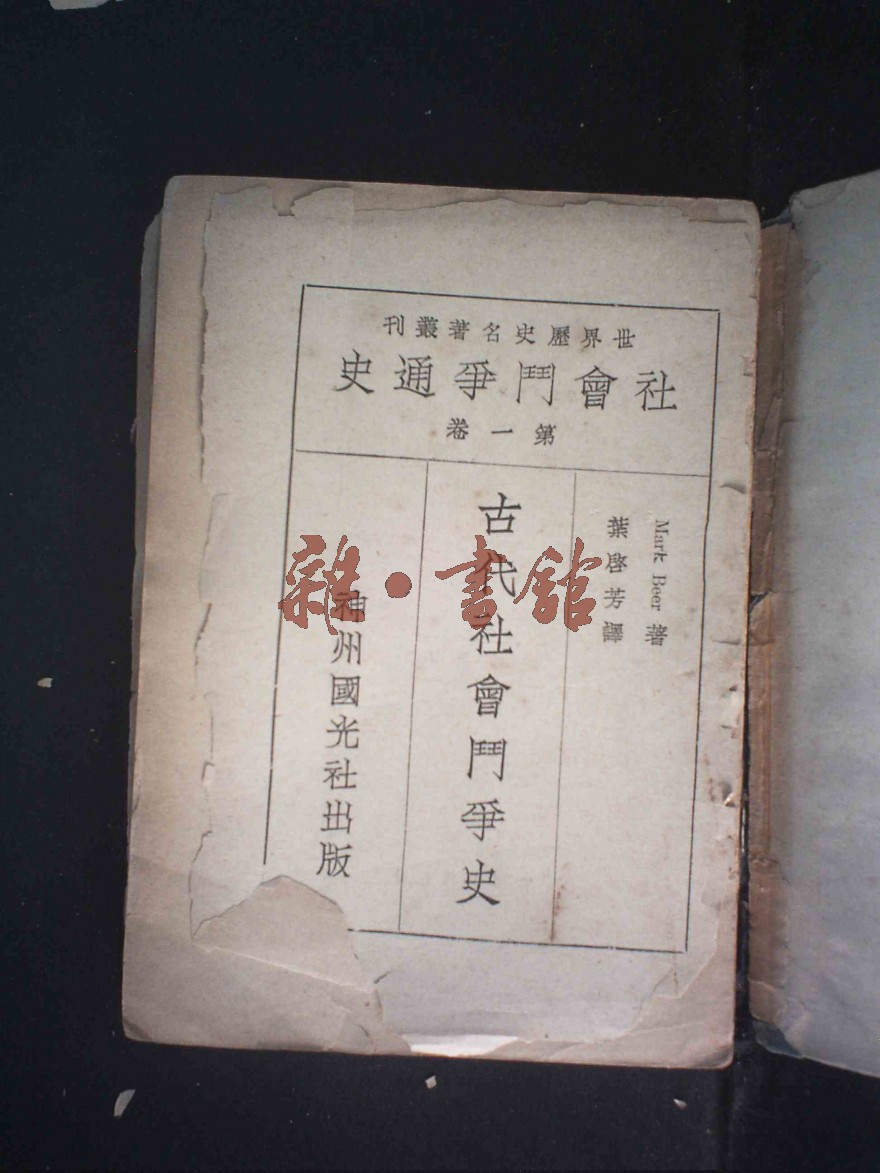 世界歷史名著叢刊
社會鬥爭通史
第一卷
Mark Beer 著
葉啓芳譯
古代社會鬥爭史
神州國光社出版
雜·書館